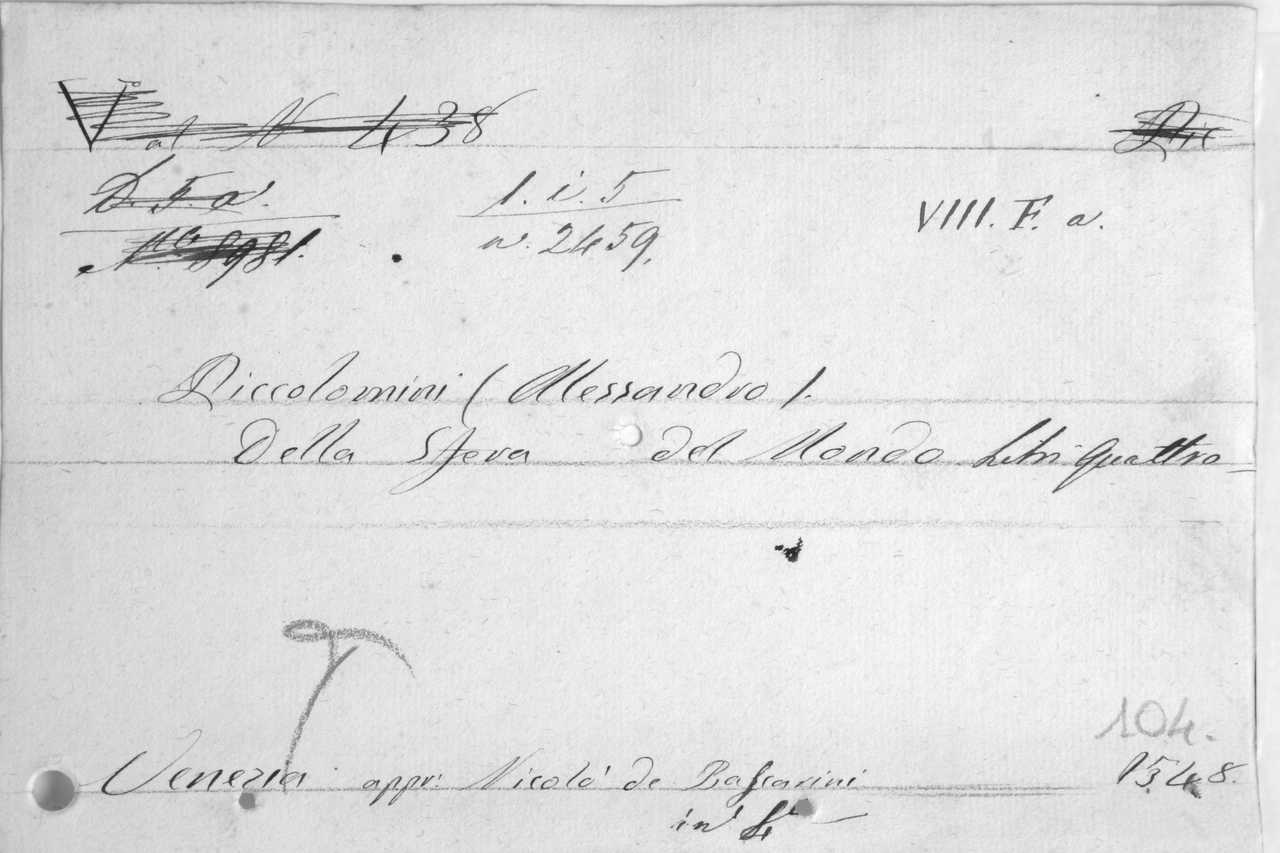 V at N 438
D. F. a. 1. i. 5 VIII. F. a.
N. 8981. n. 2459.
Piccolomini (Alessandro).
Della Sfera del Mondo Libri quattro
104.
Venezia appr: Nicolò de Bascarini 1548.
in 4°